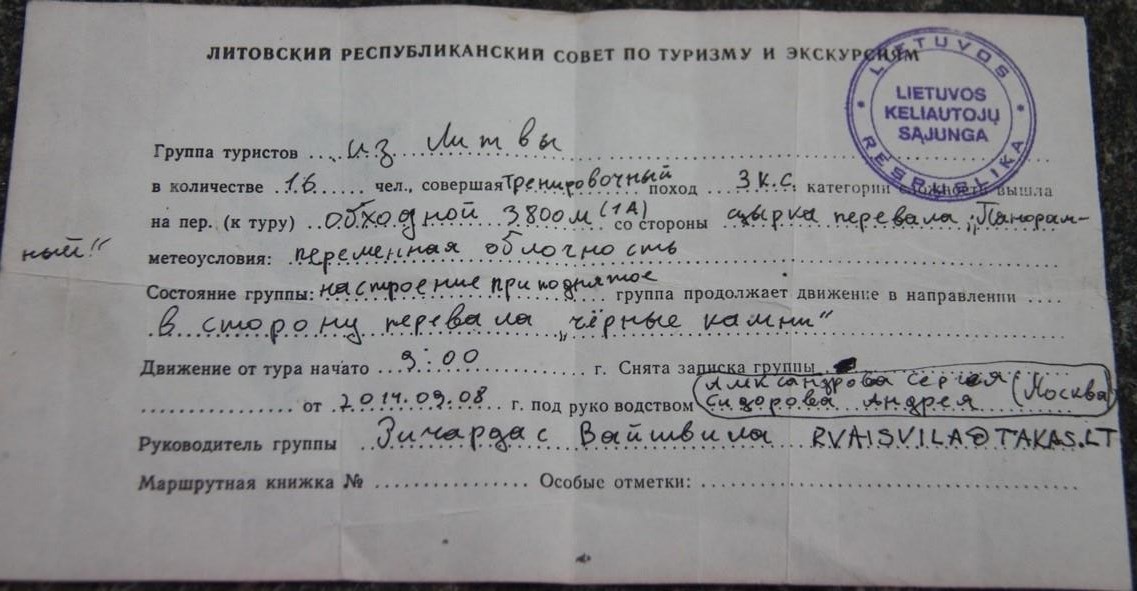 ЛИТОВСКИЙ РЕСПУБЛИКАНСКИЙ СОВЕТ ПО ТУРИЗМУ И ЭКСКУРСИЯМ
LIETUVOS
LIETUVOS
KELIAUTOJŲ
SĄJUNGA
RESPUBLIKA
Группа туристов из Литвы
в количестве 16 чел., совершая тренировочный поход 3 к.с. категории сложность вышла
на пер. (к туру) обходной 3800м (1А) со стороны цырка перевала „Панорам-
ный"
метеоусловия: переменная облочность
Состояние группы: настроение приподнятое группа продолжает движение в направлении
в сторону перевала „чёрные камни"
Движение от тура начато 9:00 г. Снята записка группы
Александрова Сергея
от 2014.09.08 г. под руководством Сидорова Андрея (Москва)
Руководитель группы Вайшвила RVAISVILA@TAKAS.LT
Маршрутная книжка № Особые отметки: